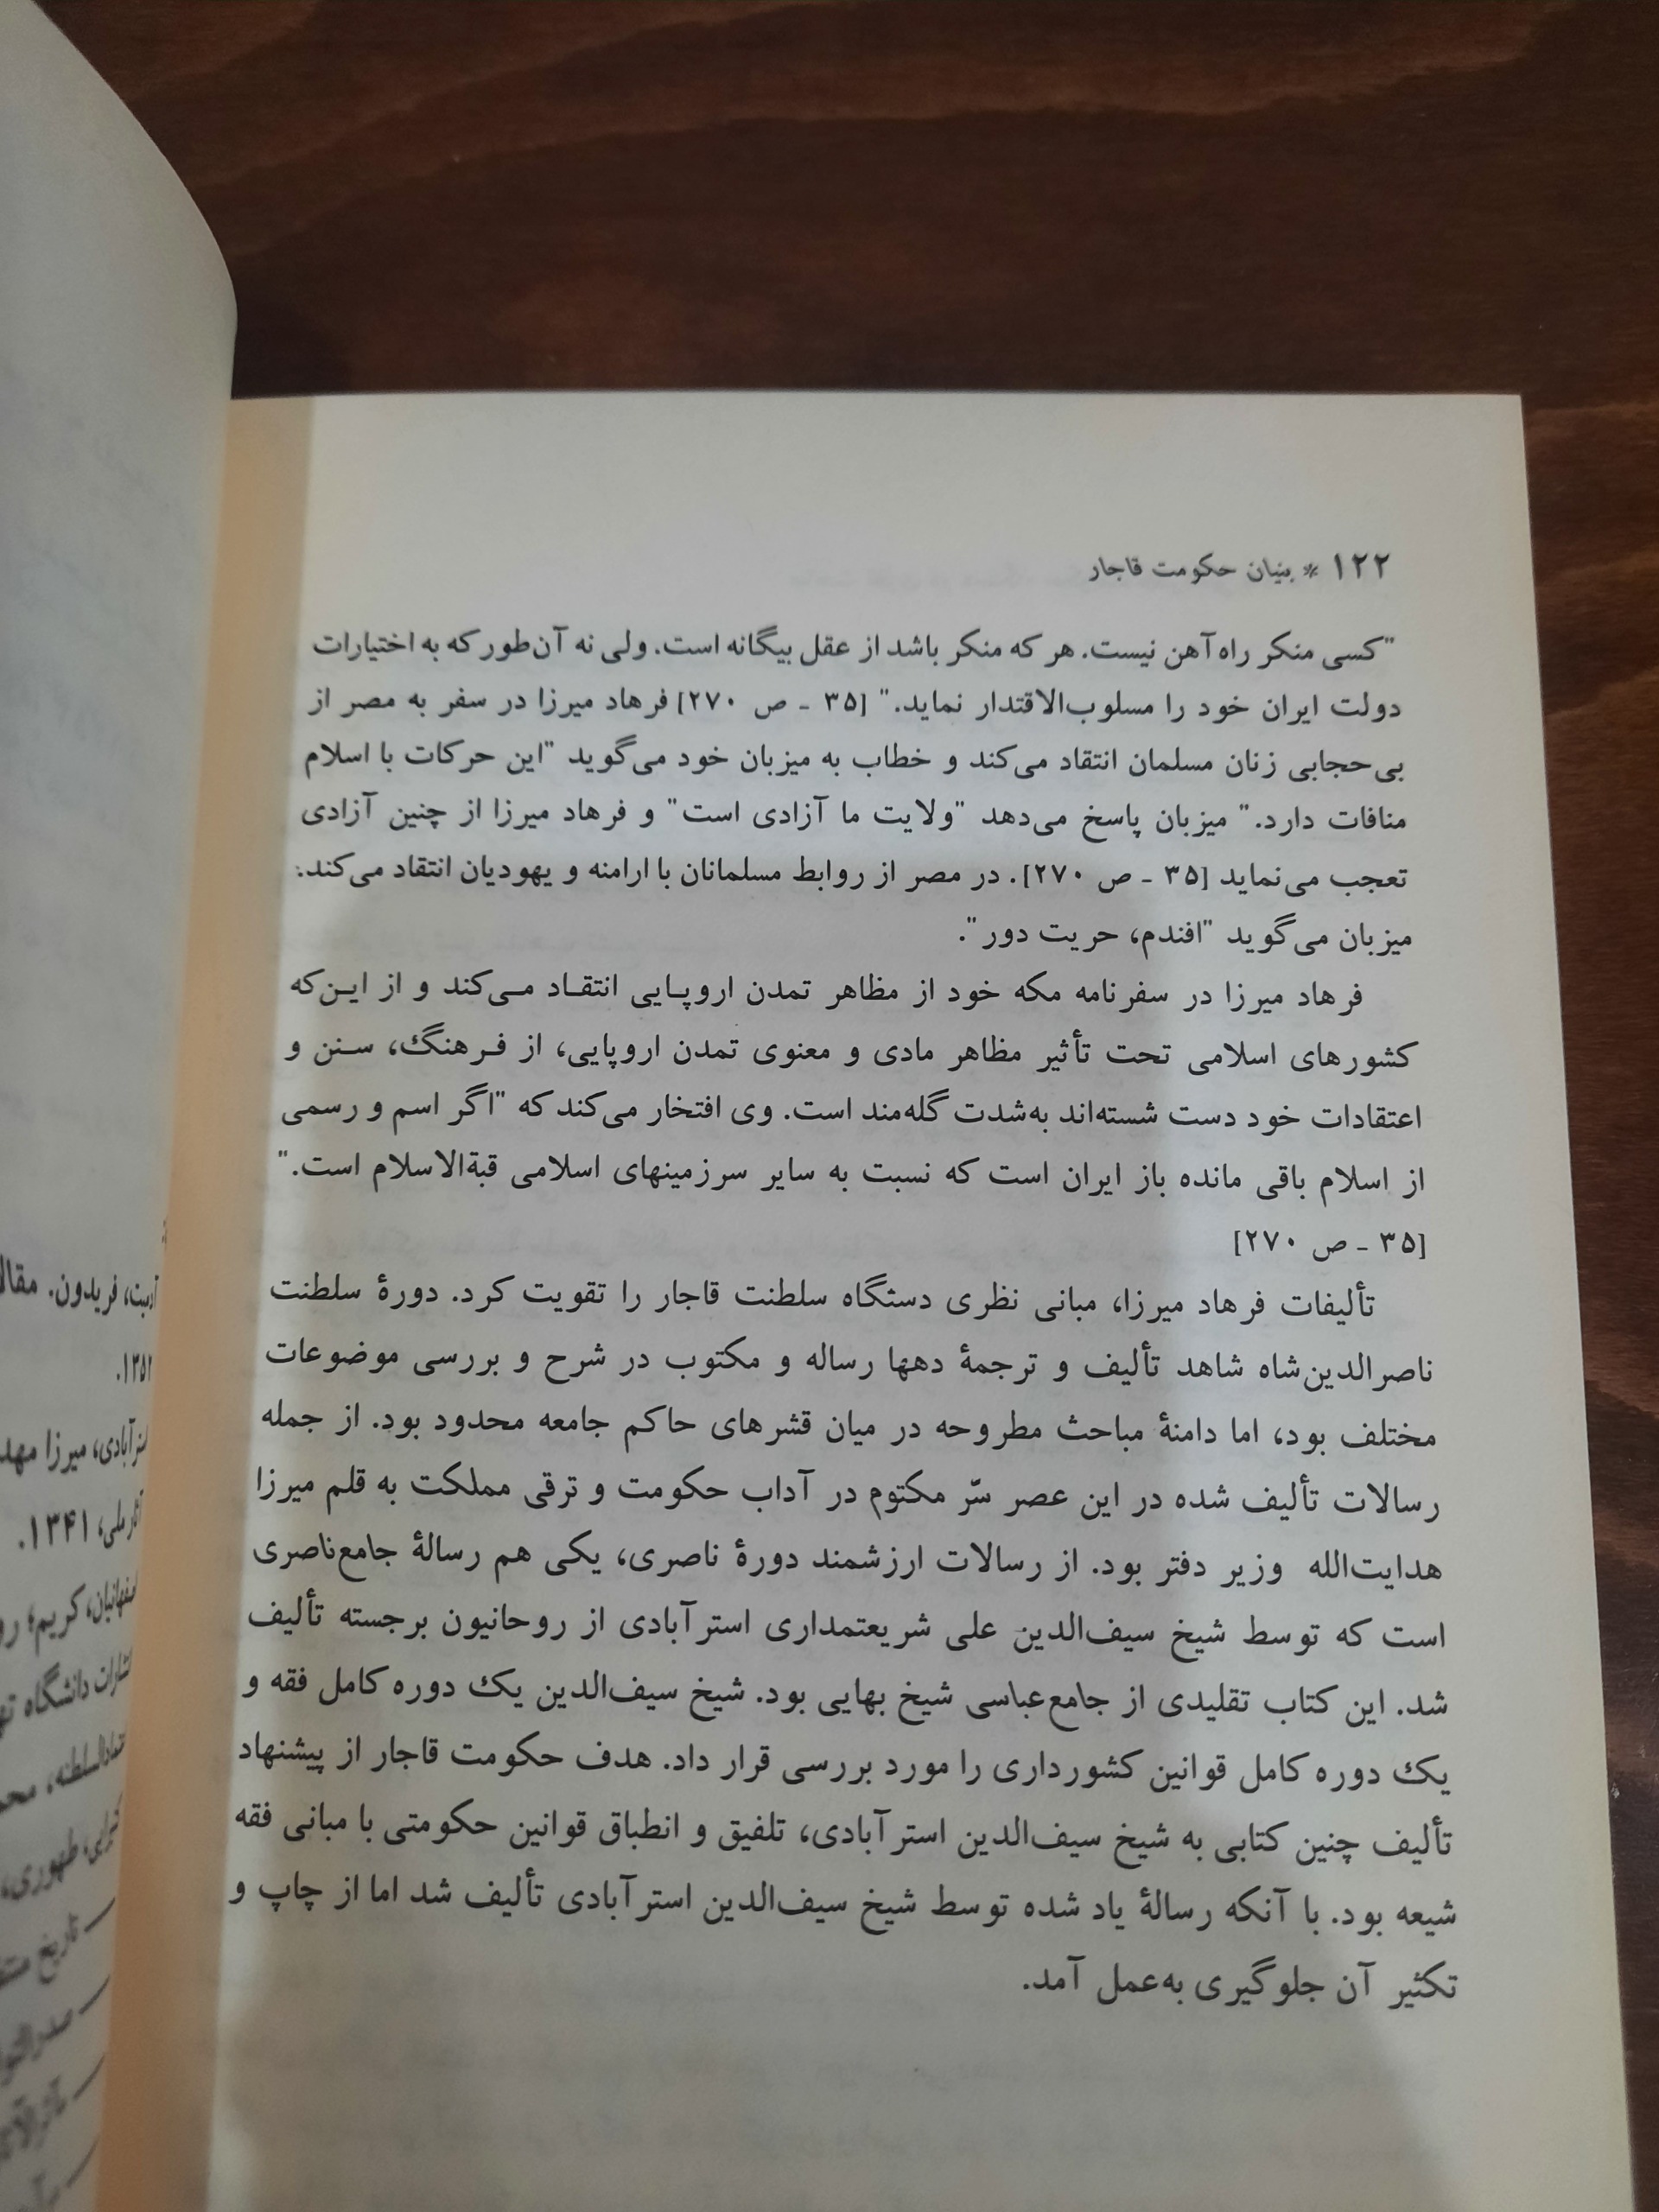 ۱۲۲ * بنیان حکومت قاجار
"کسی منکر راه‌آهن نیست. هر که منکر باشد از عقل بیگانه است. ولی نه آن‌طور که به اختیارات
دولت ایران خود را مسلوب‌الاقتدار نماید." [۳۵ - ص ۲۷۰] فرهاد میرزا در سفر به مصر از
بی‌حجابی زنان مسلمان انتقاد می‌کند و خطاب به میزبان خود می‌گوید "این حرکات با اسلام
منافات دارد." میزبان پاسخ می‌دهد "ولایت ما آزادی است" و فرهاد میرزا از چنین آزادی
تعجب می‌نماید [۳۵ - ص ۲۷۰]. در مصر از روابط مسلمانان با ارامنه و یهودیان انتقاد می‌کند.
میزبان می‌گوید "افندم، حریت دور".
فرهاد میرزا در سفرنامه مکه خود از مظاهر تمدن اروپایی انتقاد می‌کند و از این‌که
کشورهای اسلامی تحت تأثیر مظاهر مادی و معنوی تمدن اروپایی، از فرهنگ، سنن و
اعتقادات خود دست شسته‌اند به‌شدت گله‌مند است. وی افتخار می‌کند که "اگر اسم و رسمی
از اسلام باقی مانده باز ایران است که نسبت به سایر سرزمینهای اسلامی قبةالاسلام است."
[۳۵ - ص ۲۷۰]
تألیفات فرهاد میرزا، مبانی نظری دستگاه سلطنت قاجار را تقویت کرد. دورهٔ سلطنت
ناصرالدین‌شاه شاهد تألیف و ترجمهٔ دهها رساله و مکتوب در شرح و بررسی موضوعات
مختلف بود، اما دامنهٔ مباحث مطروحه در میان قشرهای حاکم جامعه محدود بود. از جمله
رسالات تألیف شده در این عصر سرّ مکتوم در آداب حکومت و ترقی مملکت به قلم میرزا
هدایت‌الله وزیر دفتر بود. از رسالات ارزشمند دورهٔ ناصری، یکی هم رسالهٔ جامع‌ناصری
است که توسط شیخ سیف‌الدین علی شریعتمداری استرآبادی از روحانیون برجسته تألیف
شد. این کتاب تقلیدی از جامع‌عباسی شیخ بهایی بود. شیخ سیف‌الدین یک دوره کامل فقه و
یک دوره کامل قوانین کشورداری را مورد بررسی قرار داد. هدف حکومت قاجار از پیشنهاد
تألیف چنین کتابی به شیخ سیف‌الدین استرآبادی، تلفیق و انطباق قوانین حکومتی با مبانی فقه
شیعه بود. با آنکه رسالهٔ یاد شده توسط شیخ سیف‌الدین استرآبادی تألیف شد اما از چاپ و
تکثیر آن جلوگیری به‌عمل آمد.
فریدون.
میرزا
۱۳۴۱.
کریم؛
دانشگاه
طهوری،
تاریخ